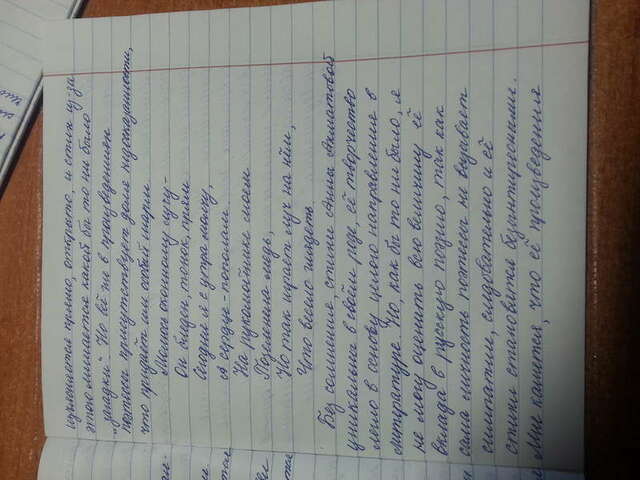 изъясняется прямо, открыто, и стих из-за
этого лишается какой бы то ни было
"загадки". Но всё же в произведениях
поэтессы присутствует доля недосказанности,
что придаёт им особый шарм:
«Молюсь оконному лучу -
Он бледен, тонок, прям.
Сегодня я с утра молчу,
А сердце - пополам.
На рукомойнике моем
Позеленела медь,
Но так играет луч на нём,
Что весело глядеть
Без сомнения стихи Анны Ахматовой
уникальны в своём роде, её творчество
легло в основу целого направления в
литературе. Но, как бы то ни было, я
не могу оценить всю величину её
вклада в русскую поэзию, так как
сама личность поэтессы не вызывает
симпатии, следовательно и её
стихи становятся безынтересными.
Мне кажется, что её произведения